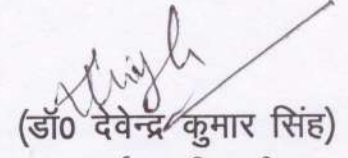 (डॉ0 देवेन्द्र कुमार सिंह)